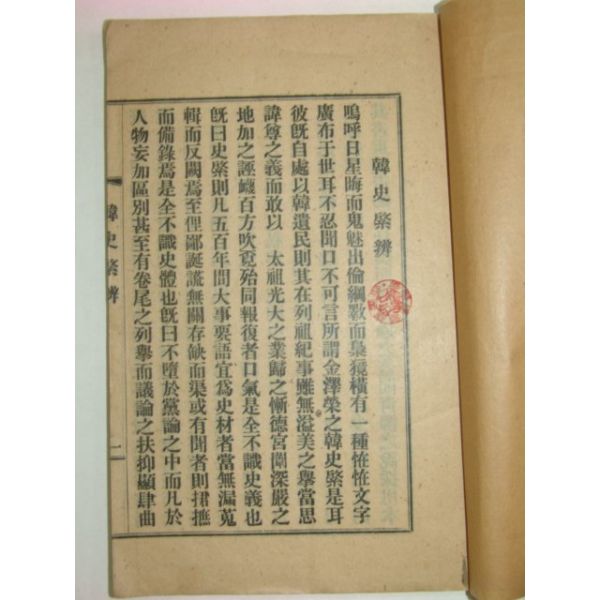 韓史綮辨
嗚呼日星晦而鬼魅出倫綱斁而梟獍橫有一種恠恠文字
廣布于世耳不忍聞口不可言所謂金澤榮之韓史綮是耳
彼旣自處以韓遺民則其在列祖紀事雖無溢美之擧當思
諱尊之義而敢以 太祖光大之業歸之慚德宮闈深嚴之
地加之誣衊百方吹覔殆同報復者口氣是全不識史義也
旣曰史綮則凡五百年間大事要語宜爲史材者當無漏蒐
輯而反闕焉至俚鄙誕謊無關存缺而渠或有聞者則捃摭
而備錄焉是全不識史體也旣曰不墮於黨論之中而凡於
人物妄加區別甚至有卷尾之列擧而議論之扶抑顯肆曲
韓史綮辨